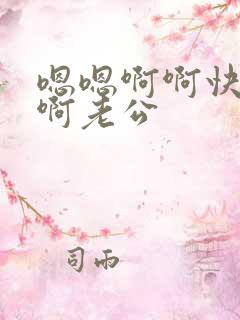 嗯嗯啊啊快
啊老公
司雨